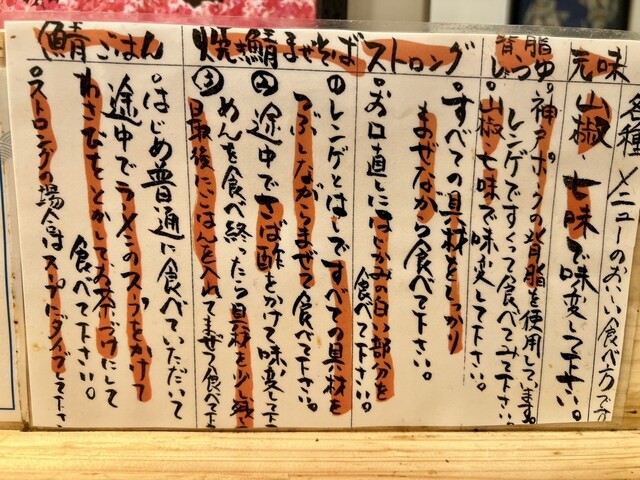 各種メニューのおいしい食べ方です
元味
山椒・七味で味変して下さい。
背脂しょうゆ
神戸ポークの背脂を使用しています。
レンゲですくって食べてみて下さい。
山椒七味で味変して下さい。
ストロング
すべての具材をしっかり
まぜながら食べて下さい。
お口直しにはじかみの白い部分を
食べて下さい。
焼き鯖まぜそば
①レンゲとはしですべての具材を
つぶしながらまぜて食べて下さい。
②途中でさば酢をかけて味変して下
③めんを食べ終ったら具材を少し残し
最後にごはんを入れてまぜて食べて下
鯖ごはん
はじめ普通に食べていただいて
途中でラーメンのスープをかけて
わさびをとかしてお茶づけにして
食べて下さい。
ストロングの場合はスープにダイブして下さ